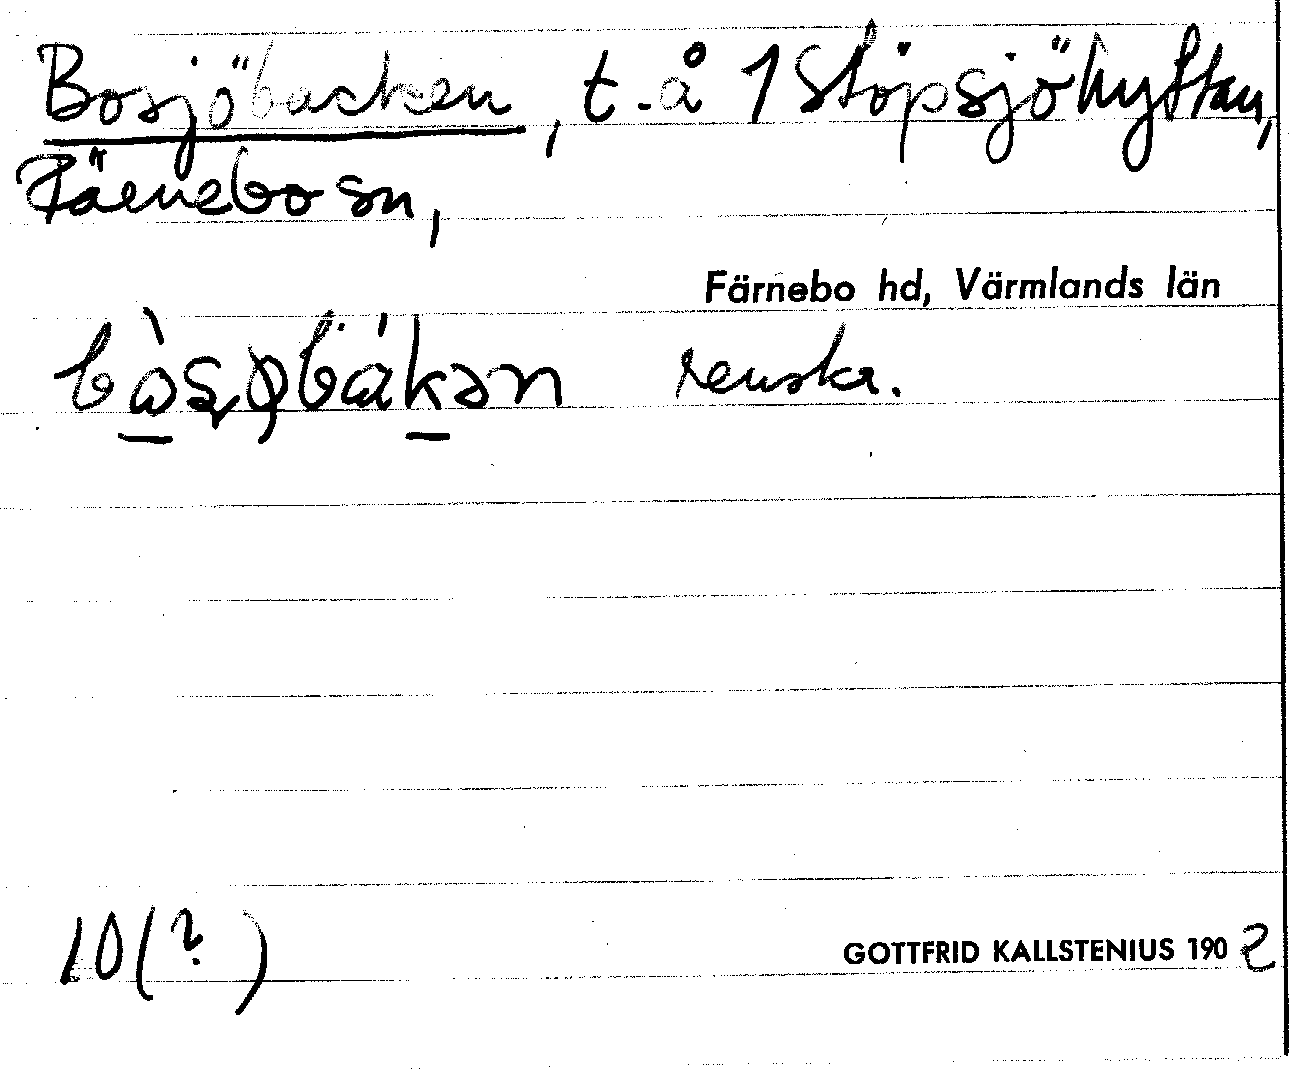 Bosjöbacken, t. å 1 Stöpsjöhyttan,
Färnebo sn,
Färnebo hd, Värmlands län
renskr.
10(?)
GOTTFRID KALLSTENIUS 1902